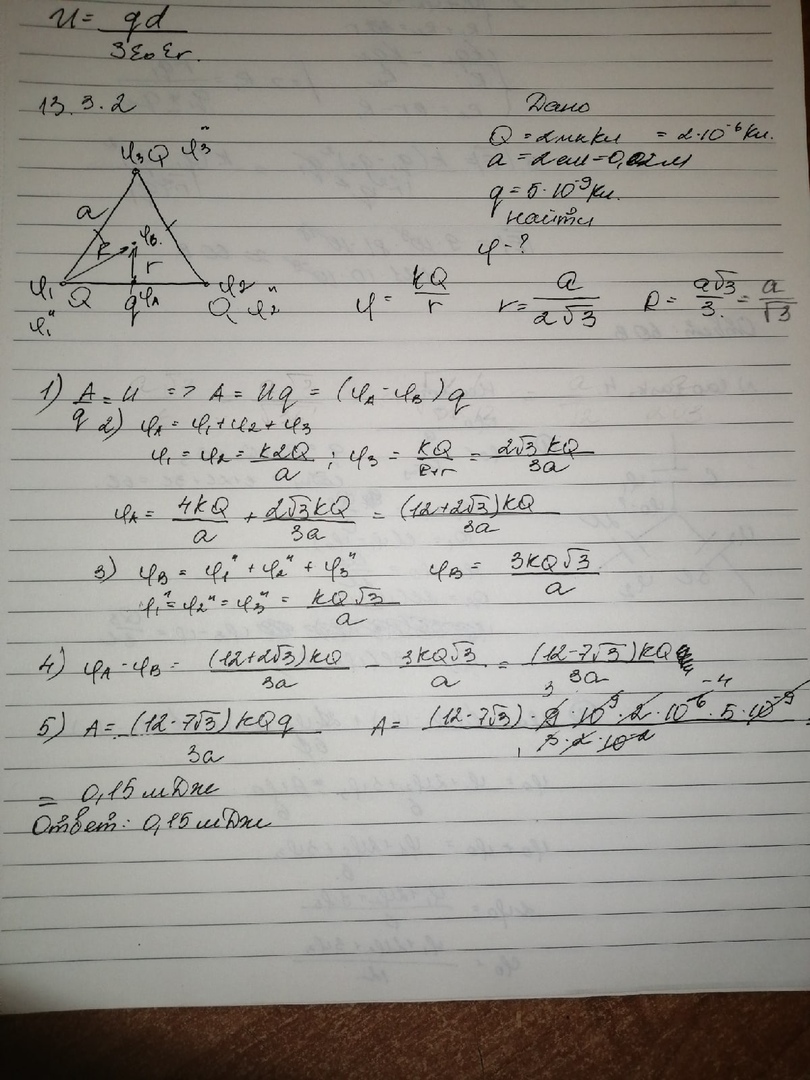 U = qd / 3ε₀εr.
13.3.2
Дано
Q = 2мкКл = 2·10⁻⁶Кл.
a = 2см = 0,02м
q = 5·10⁻⁹Кл.
найти
φ - ?
φ₃ Q φ₃"
a
R φB
r
φ₁ Q q φA Q φ₂
φ₁" φ₂"
φ = kQ / r r = a / 2√3 R = a√3 / 3 = a / √3
1) A / q = U => A = Uq = (φA - φB) q
2) φA = φ₁ + φ₂ + φ₃
φ₁ = φ₂ = k2Q / a ; φ₃ = kQ / R+r = 2√3 kQ / 3a
φA = 4kQ / a + 2√3kQ / 3a = (12+2√3)kQ / 3a
3) φB = φ₁" + φ₂" + φ₃" φB = 3kQ√3 / a
φ₁" = φ₂" = φ₃" = kQ√3 / a
4) φA - φB = (12+2√3)kQ / 3a - 3kQ√3 / a = (12-7√3)kQ / 3a
5) A = (12-7√3) kQq / 3a A = (12-7√3)·9·10⁹·2·10⁻⁶·5·10⁻⁹ / 3·2·10⁻²
3 -4
1
= 0,15 мДж
Ответ: 0,15 мДж